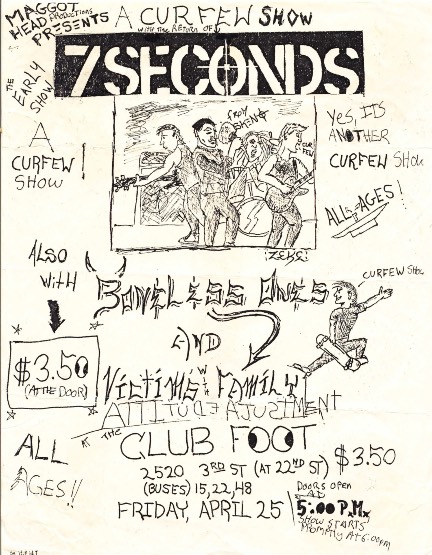 MAGGOT
HEAD PRODUCTIONS
PRESENTS
A CURFEW SHOW
WITH THE RETURN OF
7 SECONDS
THE
EARLY
SHOW
A
CURFEW
SHOW
!
FROM
RENO
CURFEW
ZEKE
Yes, ITS
ANOTHER
CURFEW Show
ALL AGES!
ALSO
WITH
BONELESS ONES
CURFEW SHOW
AND
$3.50
(AT THE DOOR)
VICTIMS FAMILY
ATTITUDE AJUSTMENT
AT THE
CLUB FOOT
ALL
AGES!!
2520 3RD ST (AT 22ND ST)
$3.50
(BUSES) 15, 22, 48
FRIDAY, APRIL 25
DOORS OPEN
5:00 P.M.
SHOW STARTS
PROMPTLY AT 6:00PM